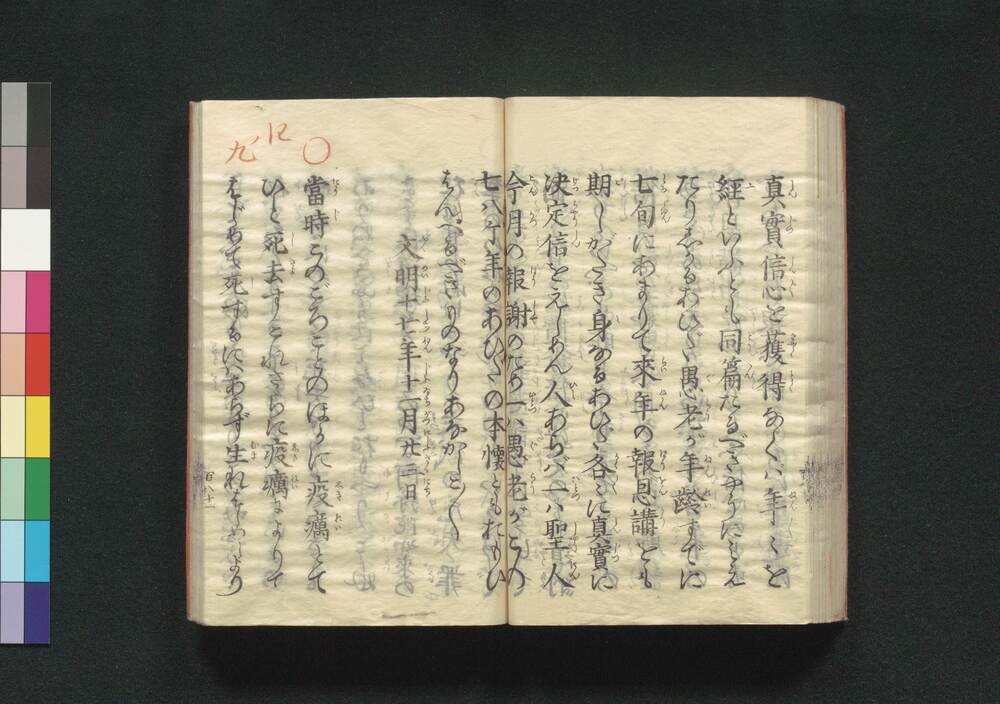 真實信心を獲得なくハ年〻を
經といふとも同篇たるべきやうにみえ
たりしかるあひだ愚老が年齡すでに
七旬にあまりて來年の報恩講をも
期しがたき身なるあひだ各〻に真實に
決定信をえしめん人あらバ一ハ聖人
今月の報謝のため一ハ愚老がこの
七八ケ年のあひだの本懷ともおもひ
はんべるべきものなりあなかしこ〳〵
文明十七年十一月廿三日
○
に
九
當時このごろことのほかに疫癘とて
ひと死去すこれさらに疫癘によりて
はじめて死するにハあらず生れはじめしより
百八十一